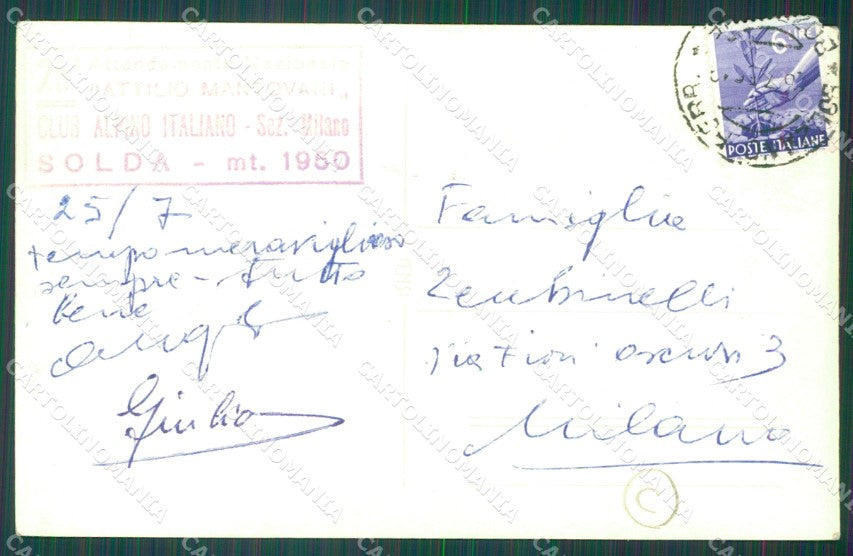 Attendamento Nazionale
"ATTILIO MANTOVANI"
CLUB ALPINO ITALIANO - Sez. Milano
SOLDA - mt. 1950
25/7
tempo meraviglioso
sempre - tutto
bene
Giulio
Famiglia
Via Fiori oscuri 3
Milano
6
POSTE ITALIANE
C
CARTOLINOMANIA